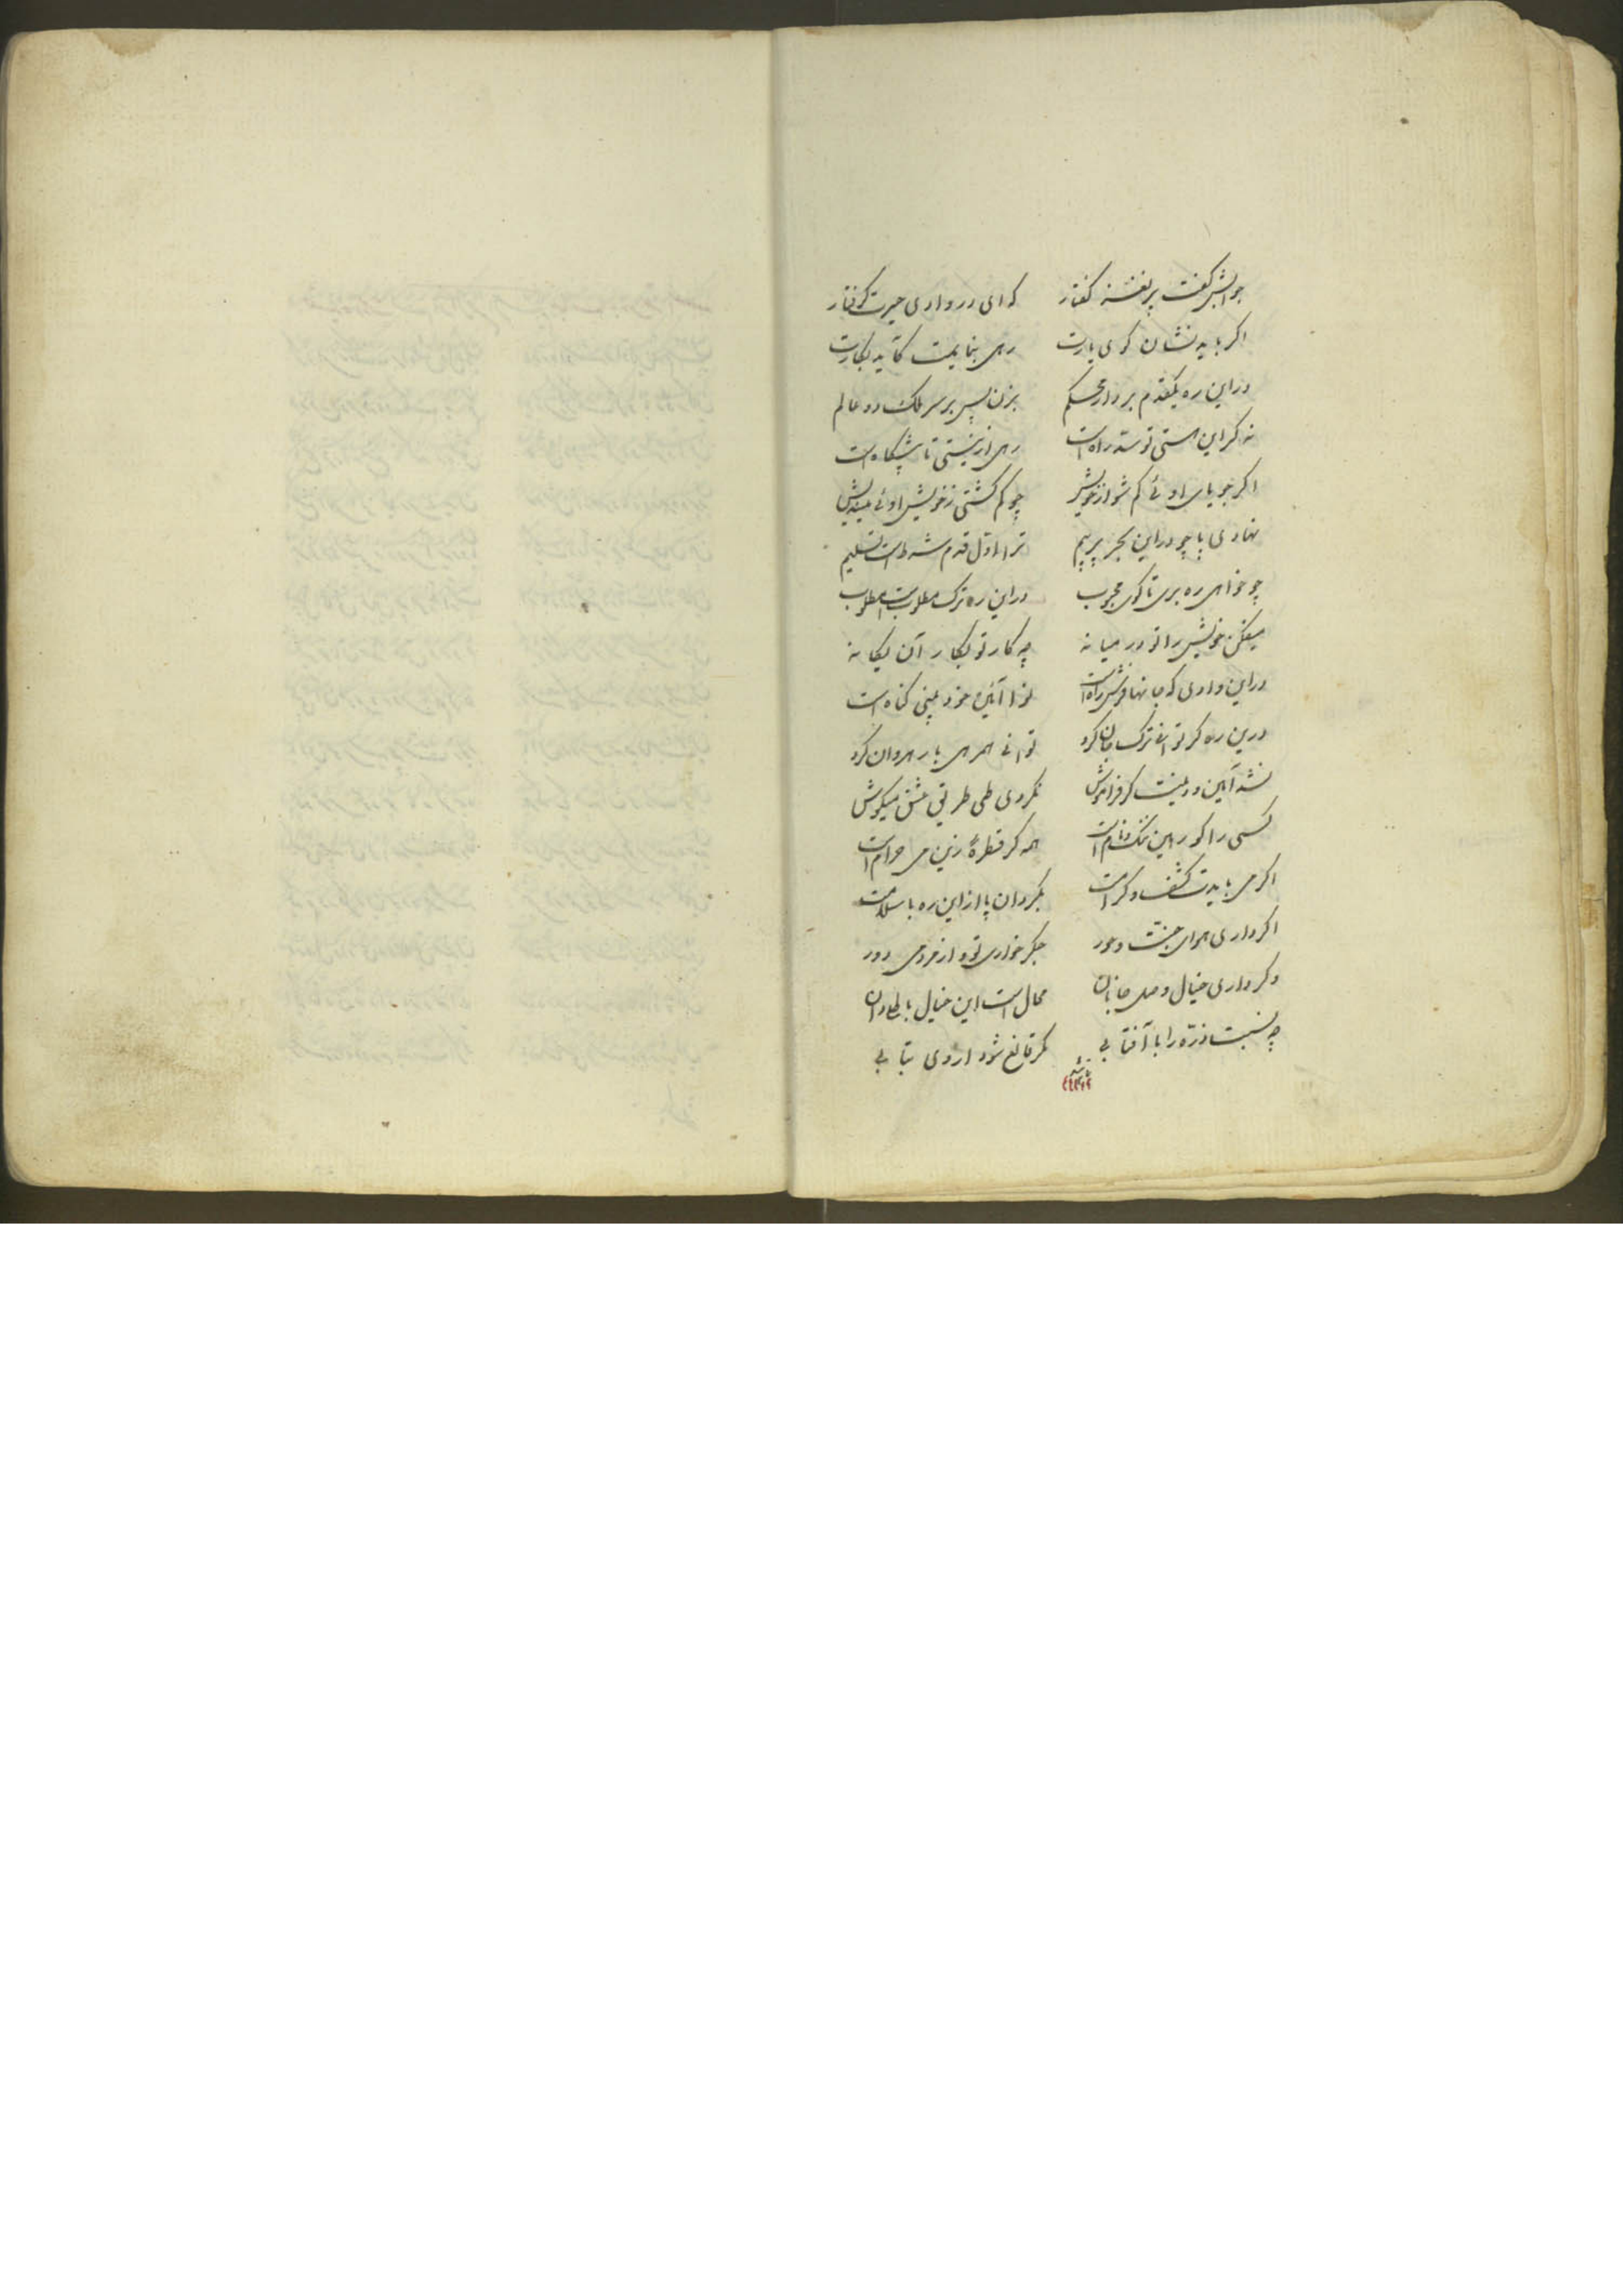 جوابش گفت پر نغنه گفتار که ای در وادی حیرت گرفتار
اکر باید نشان کوی یارت رهی بنمایمت کاید بکارت
در این ره یکقدم بردار محکم بزن پس بر سر ملک دو عالم
نه کر این هستی تو سد راه است رهی از نیستی تا پیشگاه است
اکر جویای اوئی کم شو از خویش چو کم کشتی ز خویش اوئی میندیش
نهادی پا چو در این بحر پر بیم ترا اول قدم شرط است تسلیم
چو خواهی ره بری تا کوی محبوب در این ره ترک مطلوبست مطلوب
میفکن خویش را تو در میانه چه کار تو بکار آن یکانه
در این وادی که جانها فرش راه است آئین خود بینی کناه است
درین ره کر توانی ترک جان کرد توانی همرهی با رهروان کرد
نشد آئین و دینت کر فراموش نکردی طی طریق عشق میکوش
کسی را کو رهین ننک و نام است همه کر قطرهٔ زین می حرام است
اکر می بایدت کشف و کرامت بکردان پا از این ره با سلامت
اکر داری هوای جنت و حور جکر خواری تو و از مردمی دور
و کر داری خیال وصل جانان محال است این خیال باطل
چه نسبت ذره را با آفتابی مکر قانع شود از وی بتابی